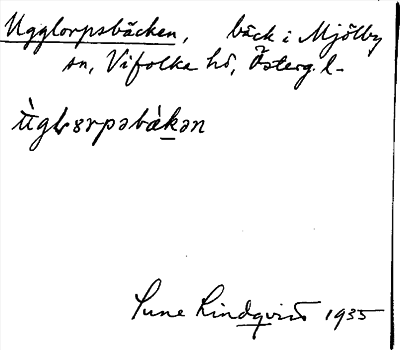 Ugglorpsbäcken, bäck i Mjölby
sn, Vifolka hd, Österg. l.
ùgḷɷrpəbàkən
Sune Lindqvist 1935